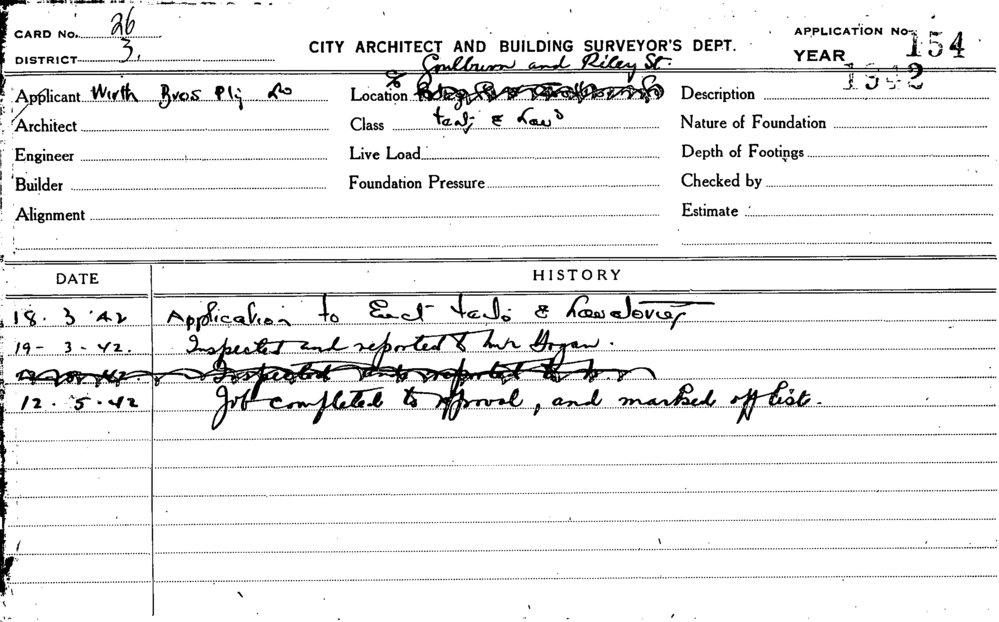 CARD No. 26
DISTRICT 3.
CITY ARCHITECT AND BUILDING SURVEYOR'S DEPT.
APPLICATION No. 154
YEAR 1942
Goulburn and Riley St.
Applicant Wirth Bros Pty
Location
Description
Architect
Class
Nature of Foundation
Engineer
Live Load
Depth of Footings
Builder
Foundation Pressure
Checked by
Alignment
Estimate
DATE
HISTORY
18. 3. 42 Application to Erect &
19- 3 -42. Inspected and reported to Mr Hogan.
Inspected and reported to
12. 5. 42 Job completed to approval, and marked off list.